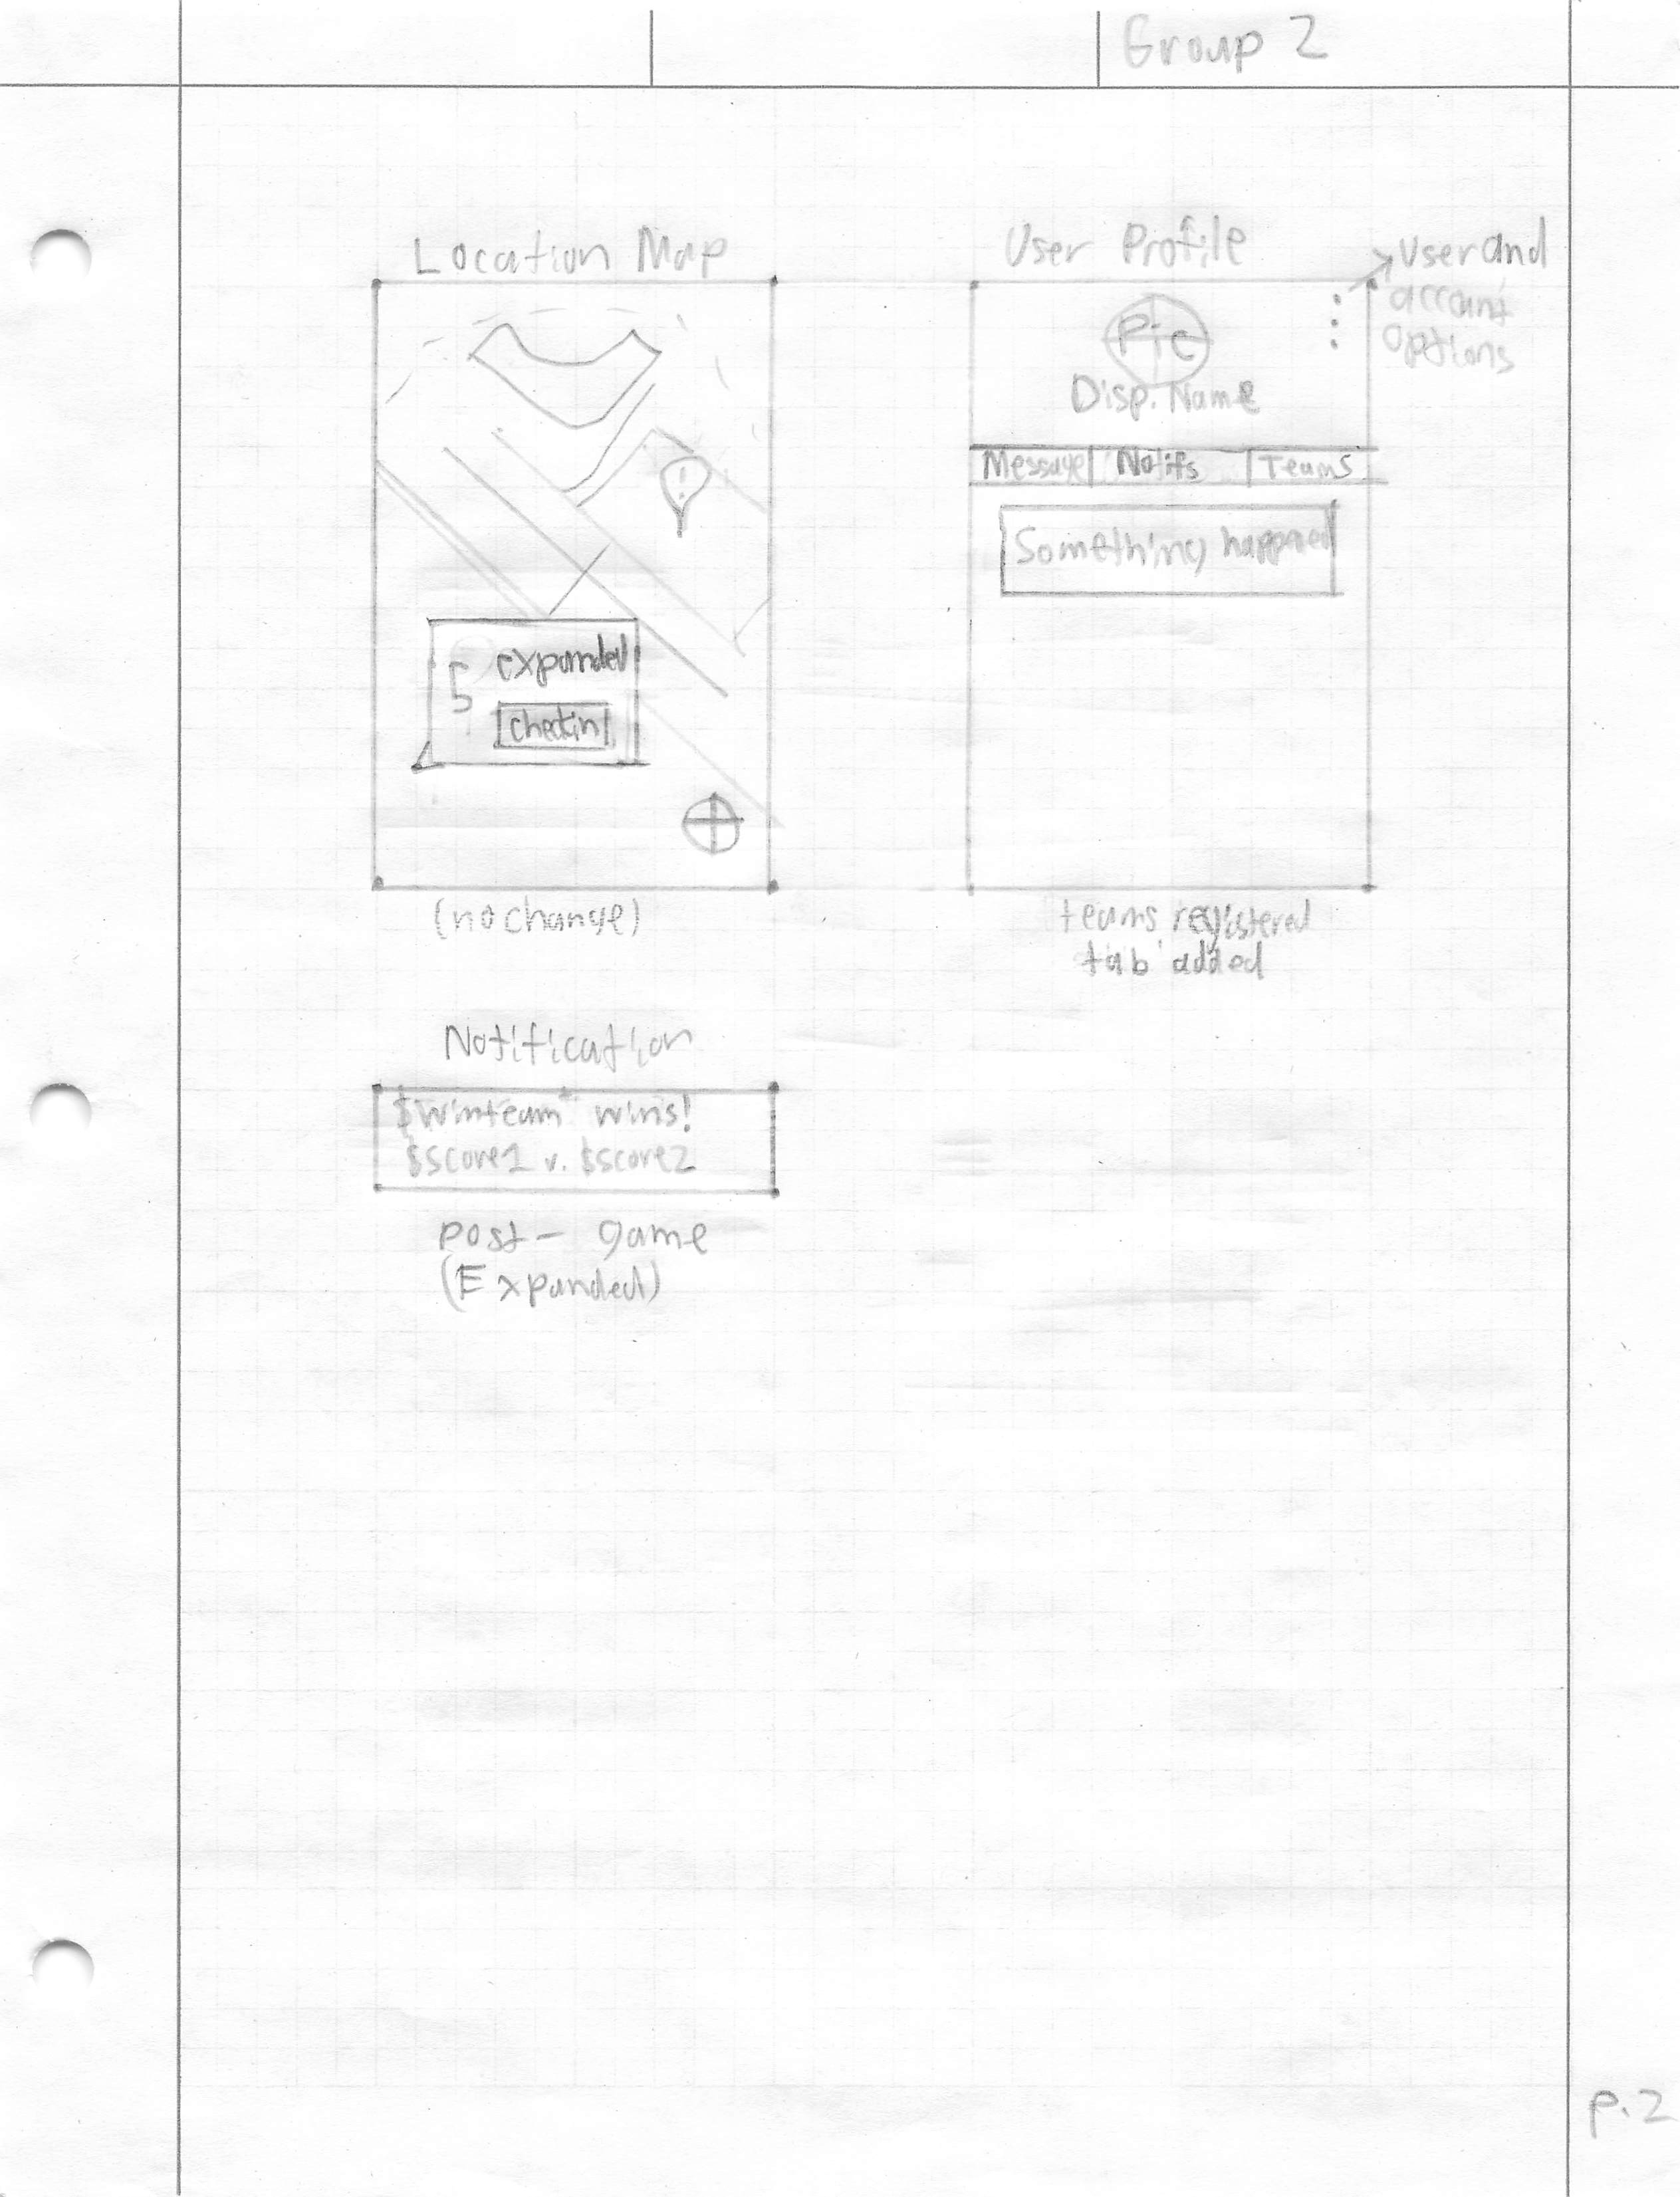 Group 2
Location Map
expanded
5
checkin
(no change)
User Profile
User and
account
options
Pic
Disp. Name
Message Notifs Teams
Something happened
teams registered
tab added
Notification
$winteam wins!
$score1 v. $score2
post- game
(Expanded)
p.2